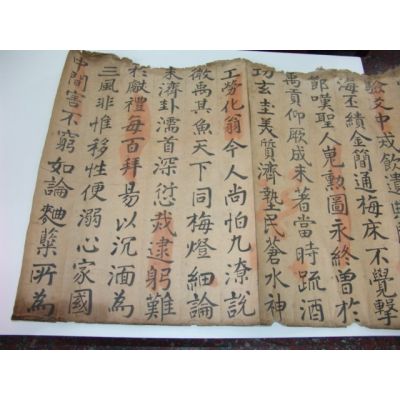 驗文中戒飲遺
海丕績金簡通梅床不覺擊
節嘆聖人嵬勳圖永終曾於
禹貢仰厥成未著當時疏酒
功玄圭美質濟墊民蒼水神
工勞化翁今人尚怕九潦說
微禹其魚天下同梅燈細論
未濟卦濡首深愆哉逮躬難
於獻禮每百拜易以沉湎為
三風非惟移性便溺心家國
中間害不窮如論麯糵所為